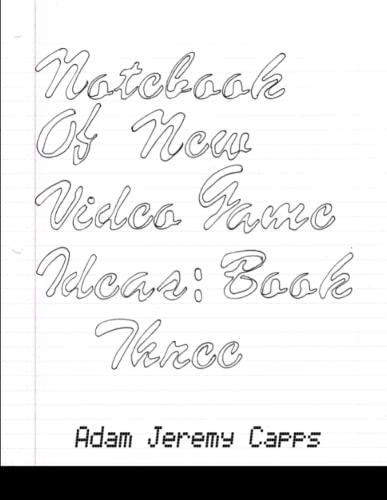 Notebook
Of New
Video Game
Ideas: Book
Three
Adam Jeremy Capps